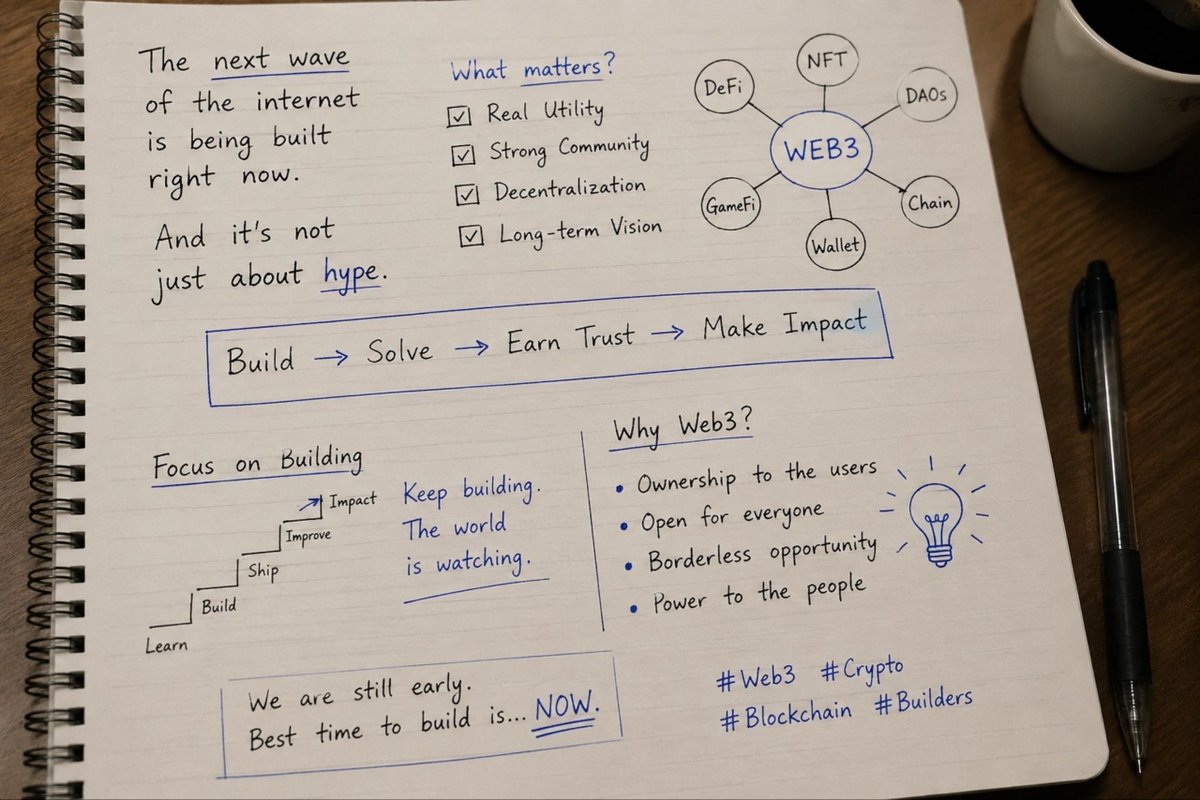 The next wave
of the internet
is being built
right now.
And it's not
just about hype.
What matters?
Real Utility
Strong Community
Decentralization
Long-term Vision
DeFi
NFT
DAOs
WEB3
GameFi
Wallet
Chain
Build → Solve → Earn Trust → Make Impact
Focus on Building
Impact
Improve
Ship
Build
Learn
Keep building.
The world
is watching.
Why Web3?
• Ownership to the users
• Open for everyone
• Borderless opportunity
• Power to the people
We are still early.
Best time to build is... NOW.
#Web3 #Crypto
#Blockchain #Builders